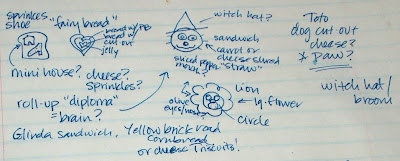 sprinkles
shoe
"fairy bread"
bread w/ PB
bread w/
cut out
jelly
witch hat?
sandwich
carrot or
cheese shred
sliced paper "straw"
mini house? cheese?
sprinkles?
roll-up "diploma"
= brain?
olive
eyes/nose?
lion
lg. flower
circle
Toto
dog cut out
cheese?
* paw?
witch hat/
broom
Glinda sandwich, Yellow brick road
cornbread
or cheese Triscuits!